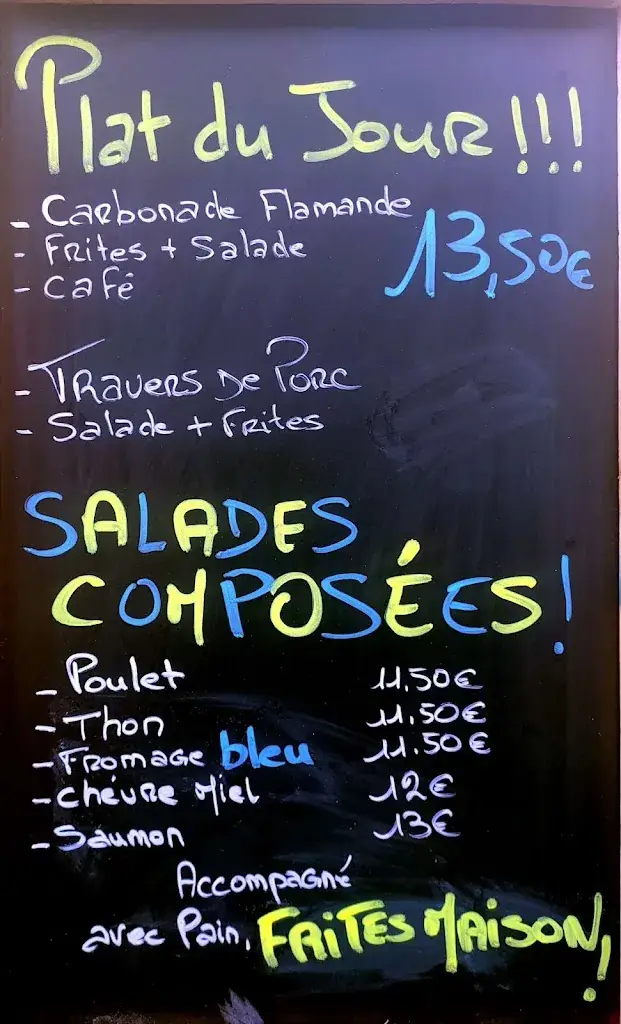 Plat du Jour !!!
- Carbonade Flamande
- Frites + Salade
13,50€
- Café
- Travers de Porc
- Salade + Frites
SALADES
COMPOSÉES !
- Poulet 11.50€
- Thon 11.50€
- Fromage bleu 11.50€
- Chévre Miel 12€
- Saumon 13€
Accompagné
avec Pain, FAITES MAISON, !